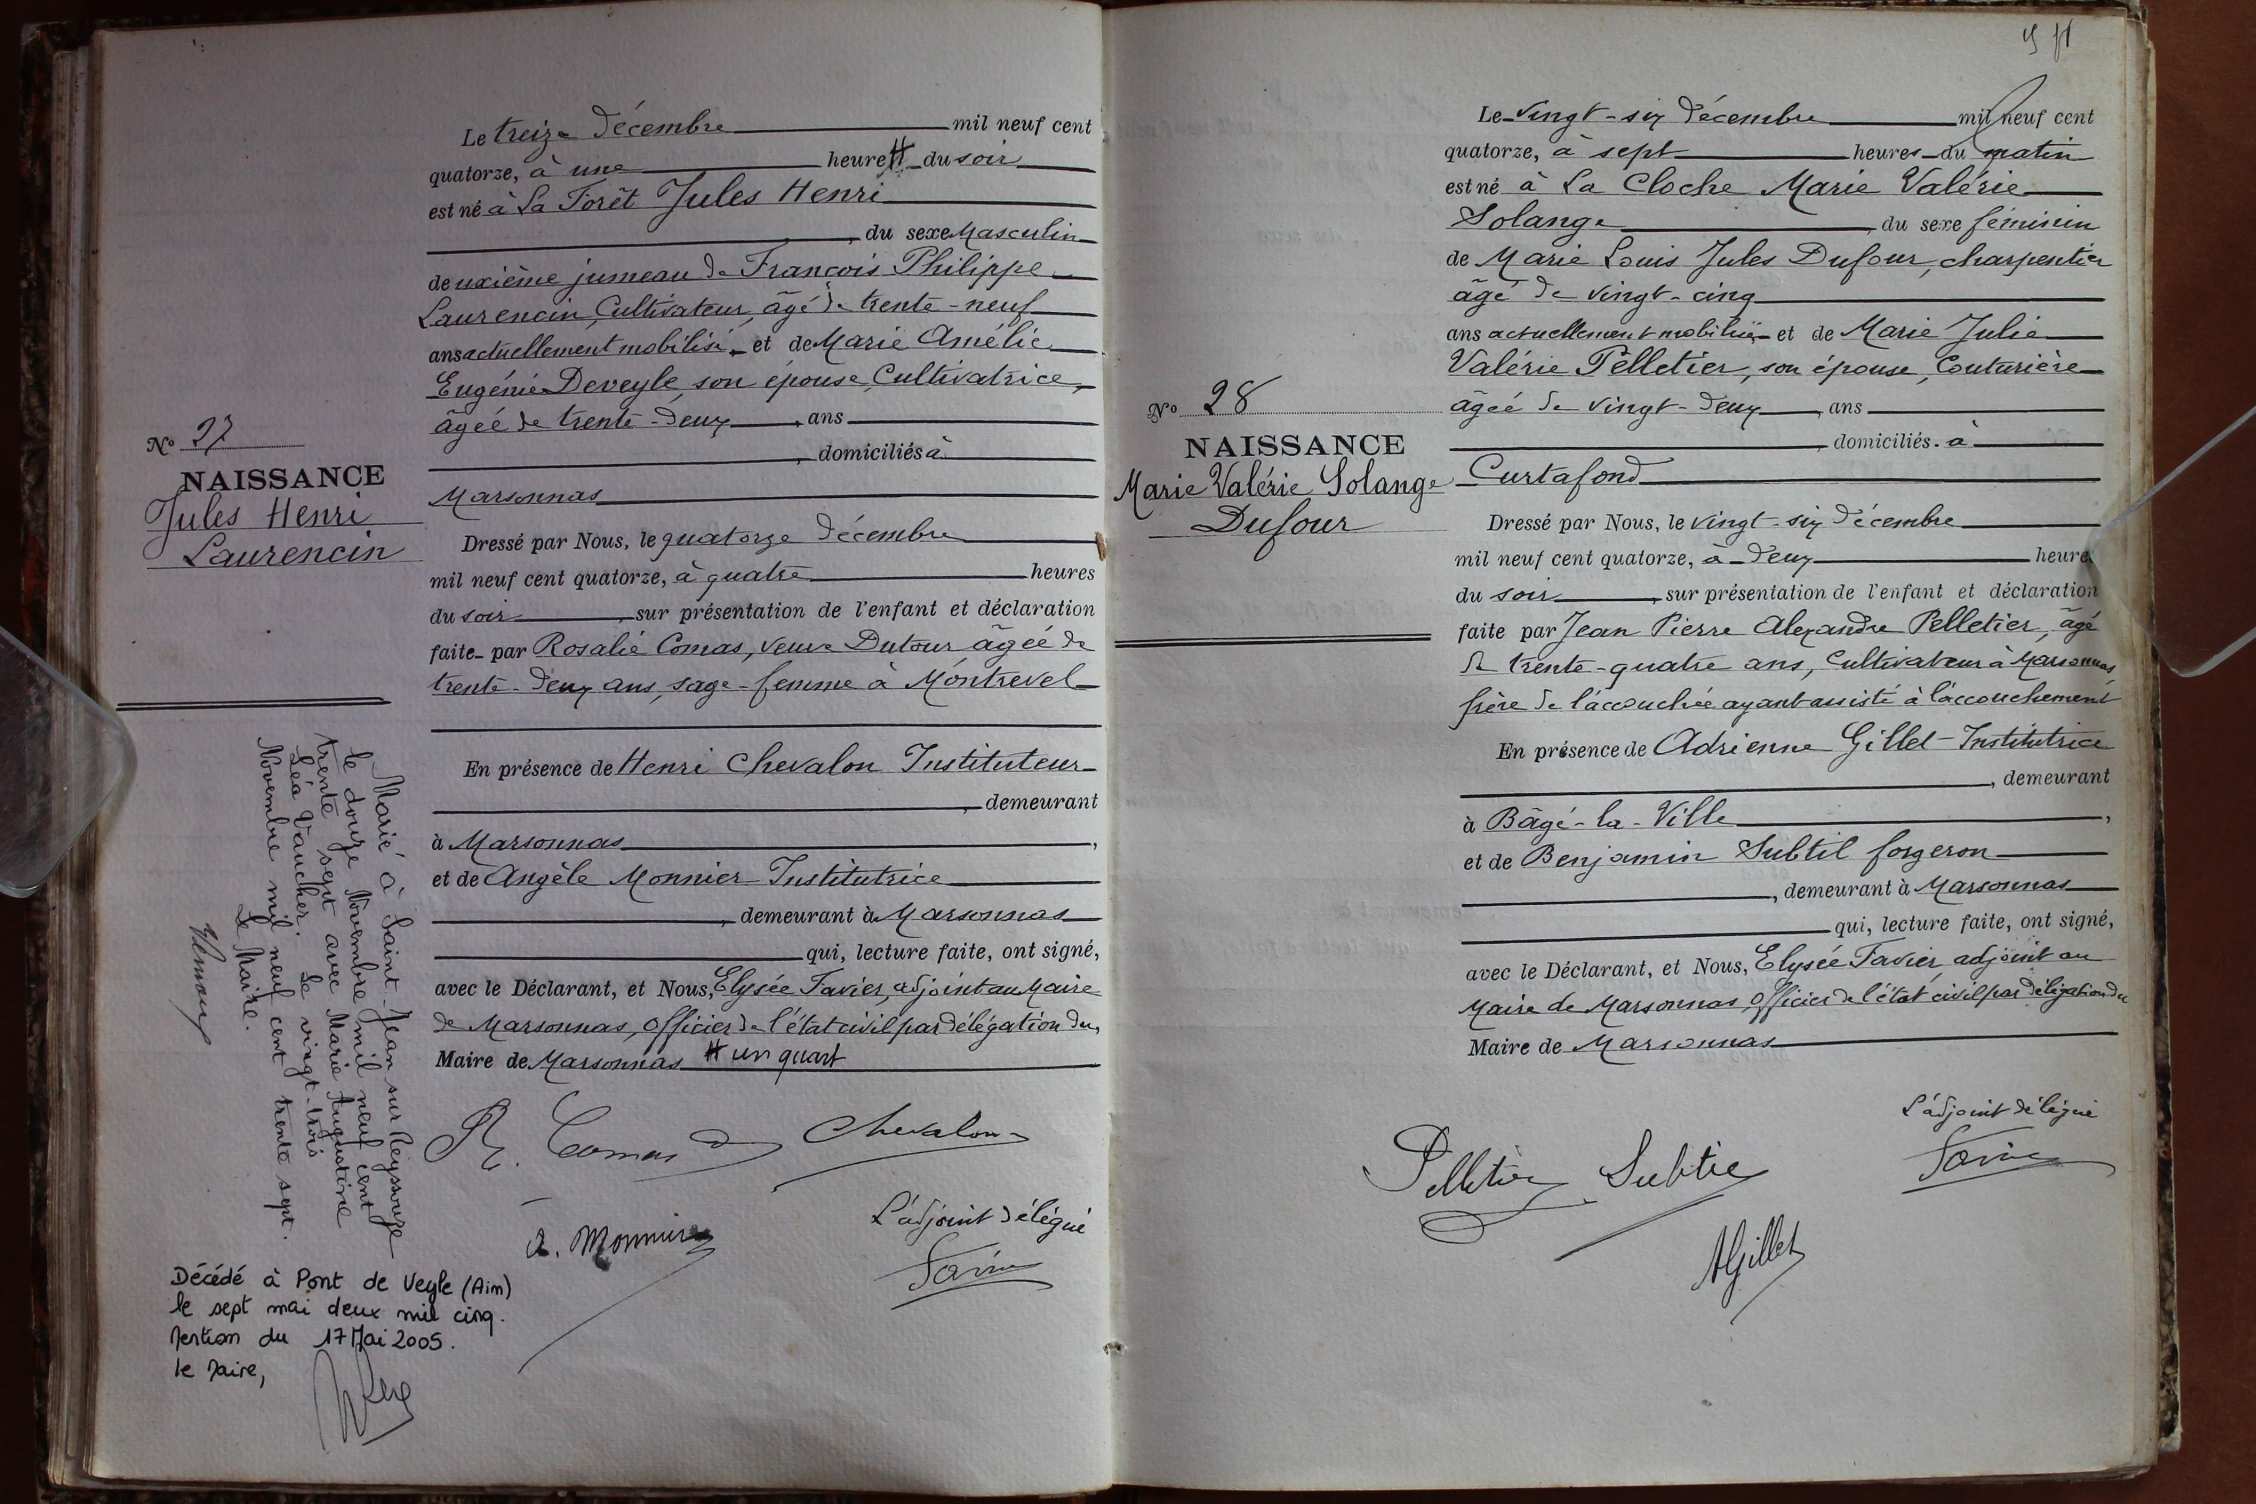 Le treize décembre mil neuf cent
quatorze, à une heure # du soir
est né à La Forêt Jules Henri
, du sexe Masculin
deuxième jumeau de François Philippe
Laurencin, Cultivateur, âgé de trente-neuf
ans actuellement mobilisé et de Marie Amélie
Eugénie Deveyle, son épouse, Cultivatrice,
âgée de trente-deux, ans
, domiciliés à
Marsonnas
Dressé par Nous, le quatorze décembre
mil neuf cent quatorze, à quatre heures
du soir, sur présentation de l'enfant et déclaration
faite par Rosalie Comas, veuve Dutour âgée de
trente-deux ans, sage-femme à Montrevel
En présence de Henri Chevalon Instituteur
, demeurant
à Marsonnas,
et de Angèle Monnier Institutrice
, demeurant à Marsonnas
qui, lecture faite, ont signé,
avec le Déclarant, et Nous, Elysée Favier, adjoint au Maire
de Marsonnas, Officier de l'état civil par délégation du
Maire de Marsonnas # un quart
R. Comas Chevalon
A. Monnier
L'adjoint délégué
Favier
No 27
NAISSANCE
Jules Henri
Laurencin
Marié à Saint-Jean sur Reyssouze
le douze Novembre mil neuf cent
trente sept avec Marie Augustine
Léa Vaucher. Le vingt-trois
Novembre mil neuf cent trente sept.
Le Maire.
Décédé à Pont de Veyle (Ain)
le sept mai deux mil cinq.
Mention du 17 Mai 2005.
le Maire,
Le vingt-six décembre mil neuf cent
quatorze, à sept heures du matin
est né à La Cloche Marie Valérie
Solange, du sexe féminin
de Marie Louis Jules Dufour, charpentier
âgé de vingt-cinq
ans actuellement mobilisé, et de Marie Julie
Valérie Pelletier, son épouse, Couturière
âgée de vingt-deux, ans
, domiciliés à
Curtafond
Dressé par Nous, le vingt-six décembre
mil neuf cent quatorze, à deux heures
du soir, sur présentation de l'enfant et déclaration
faite par Jean Pierre Alexandre Pelletier, âgé
de trente-quatre ans, Cultivateur à Marsonnas,
frère de l'accouchée ayant assisté à l'accouchement
En présence de Adrienne Gillet Institutrice
, demeurant
à Bâgé-la-Ville,
et de Benjamin Subtil forgeron
, demeurant à Marsonnas
qui, lecture faite, ont signé,
avec le Déclarant, et Nous, Elysée Favier adjoint au
Maire de Marsonnas Officier de l'état civil par délégation du
Maire de Marsonnas
L'adjoint délégué
Pelletier Subtil Favier
A Gillet
No 28
NAISSANCE
Marie Valérie Solange
Dufour